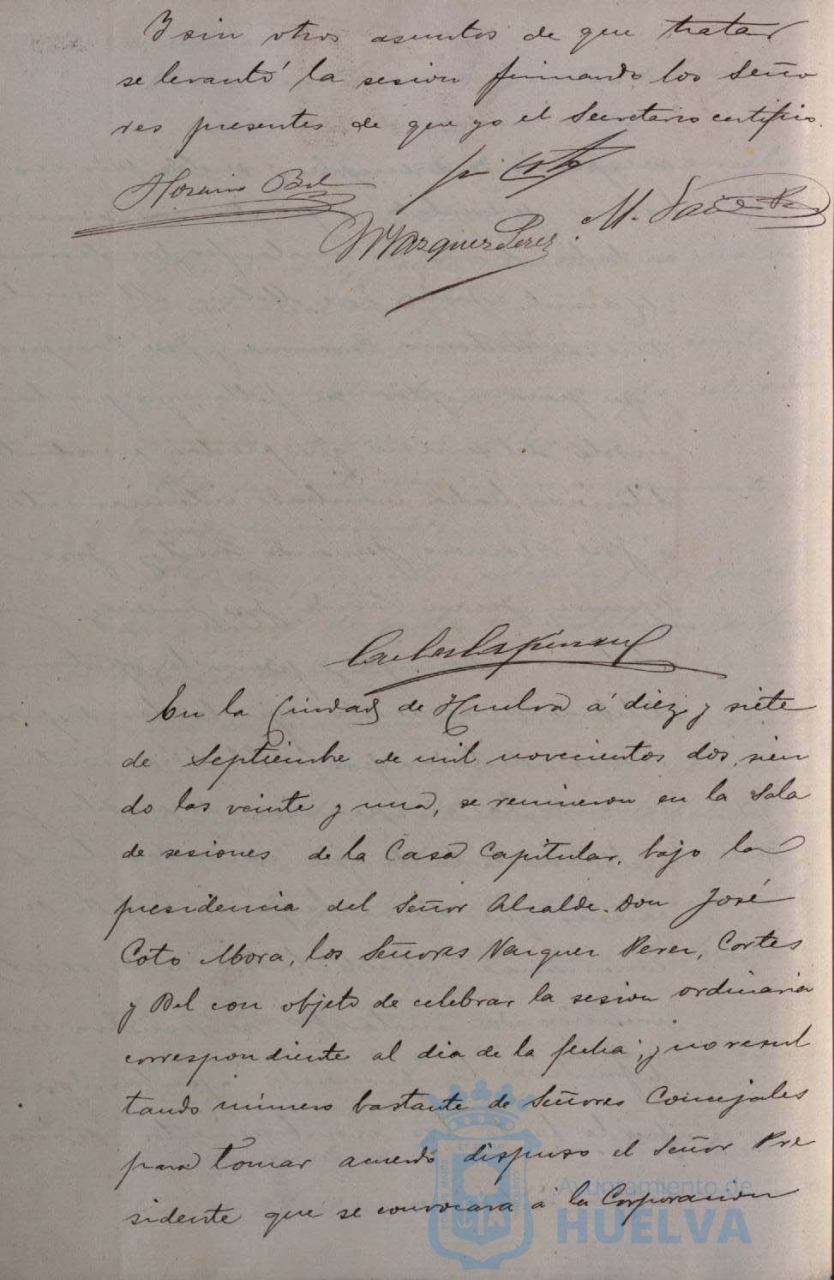 Y sin otros asuntos de que tratar
se levantó la sesion firmando los Seño
res presentes de que yo el Secretario certifico.
Bel
Vazquez Perez. M.
En la Ciudad de Huelva á diez y siete
de Septiembre de mil novecientos dos, sien
do las veinte y una, se reunieron en la Sala
de sesiones de la Casa Capitular, bajo la
presidencia del Señor Alcalde Don José
Coto Mora, los Señores Vazquez Perez, Cortes
y Bel con objeto de celebrar la sesion ordinaria
correspondiente al dia de la fecha; y no resul
tando número bastante de Señores Concejales
para tomar acuerdo dispuso el Señor Pre
sidente que se convocara á la Corporacion
Ayuntamiento de
HUELVA